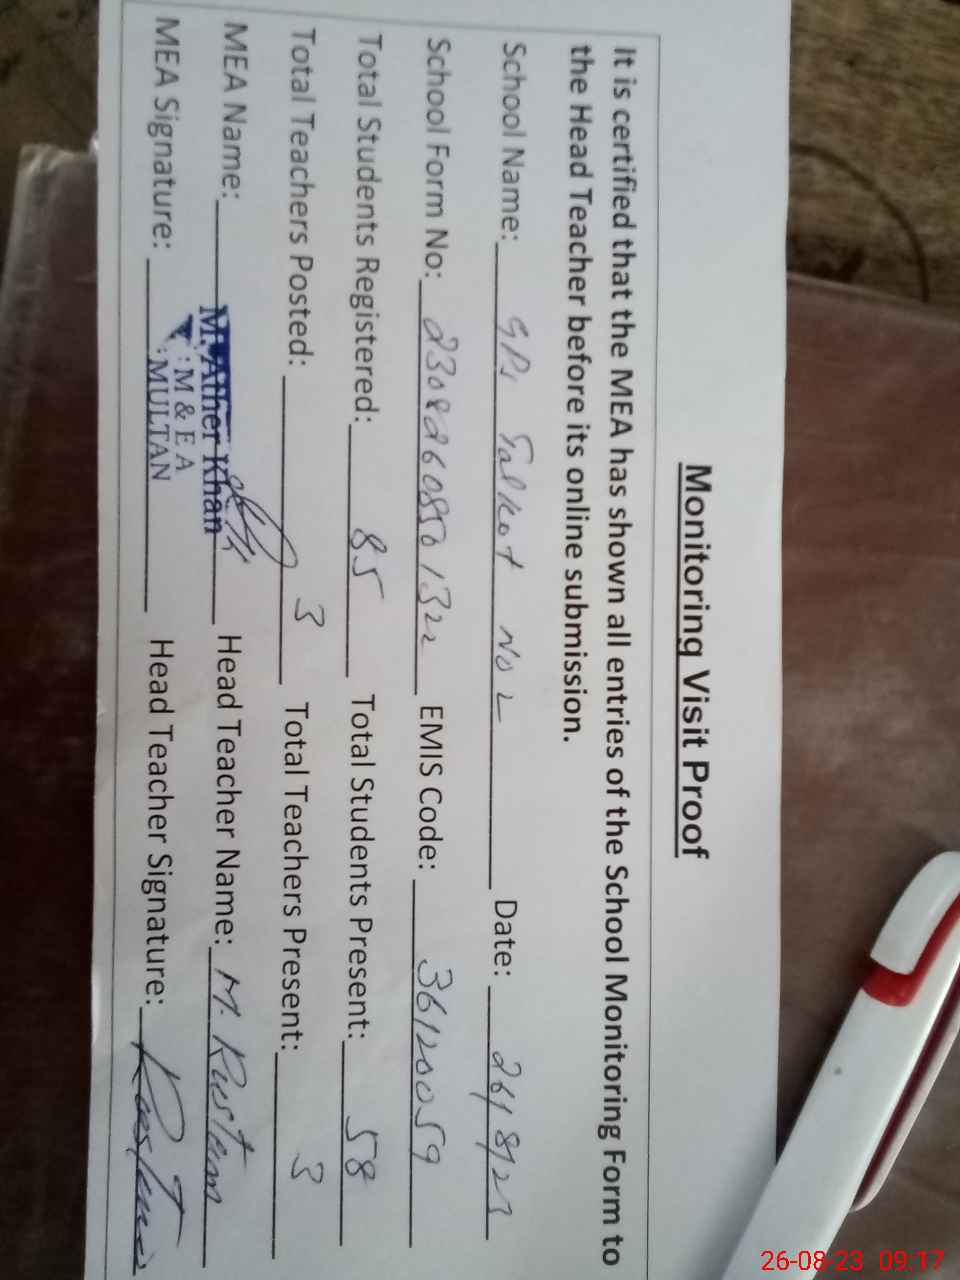 Monitoring Visit Proof
It is certified that the MEA has shown all entries of the School Monitoring Form to
the Head Teacher before its online submission.
School Name: GPS Salkot No 2 Date: 26/8/23
School Form No: 23082608501322 EMIS Code: 36120059
Total Students Registered: 85 Total Students Present: 58
Total Teachers Posted: 3 Total Teachers Present: 3
MEA Name: M. Ather Khan Head Teacher Name: M. Rustam
M & E A
MULTAN
MEA Signature: Head Teacher Signature: Rustam
26-08-23 09:17